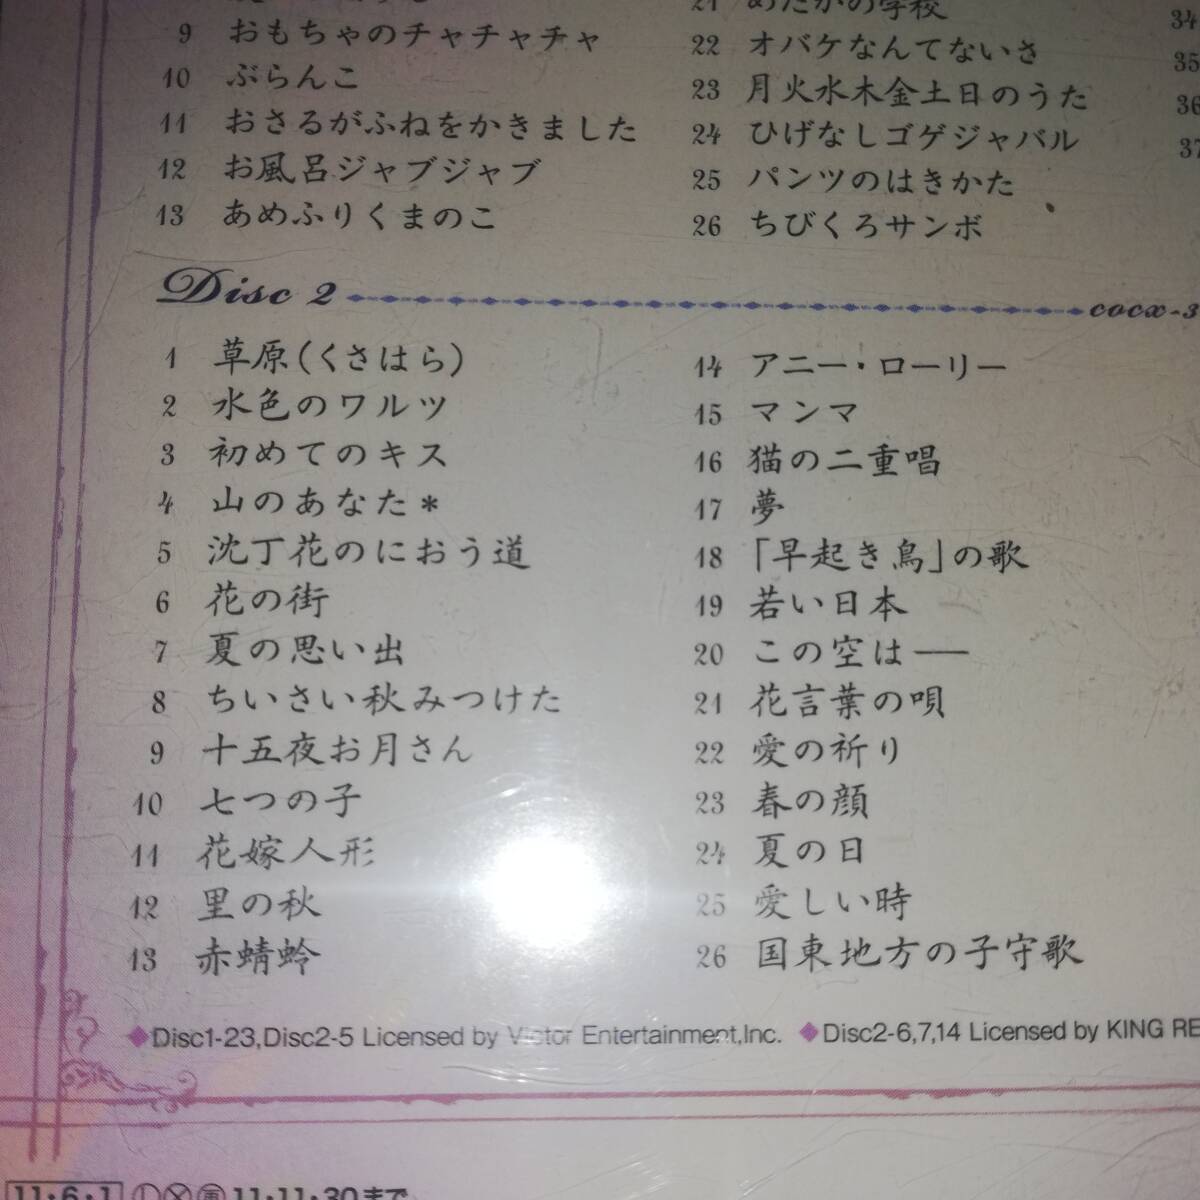 9 おもちゃのチャチャチャ
10 ぶらんこ
11 おさるがふねをかきました
12 お風呂ジャブジャブ
13 あめふりくまのこ
21 めだかの学校
22 オバケなんてないさ
23 月火水木金土日のうた
24 ひげなしゴゲジャバル
25 パンツのはきかた
26 ちびくろサンボ
34
35
36
37
Disc 2 COCX-3
1 草原(くさはら)
2 水色のワルツ
3 初めてのキス
4 山のあなた*
5 沈丁花のにおう道
6 花の街
7 夏の思い出
8 ちいさい秋みつけた
9 十五夜お月さん
10 七つの子
11 花嫁人形
12 里の秋
13 赤蜻蛉
14 アニー・ローリー
15 マンマ
16 猫の二重唱
17 夢
18 「早起き鳥」の歌
19 若い日本
20 この空は──
21 花言葉の唄
22 愛の祈り
23 春の顔
24 夏の日
25 愛しい時
26 国東地方の子守歌
◆Disc1-23,Disc2-5 Licensed by Victor Entertainment,Inc. ◆Disc2-6,7,14 Licensed by KING RE
11・6・1 11・11・30まで